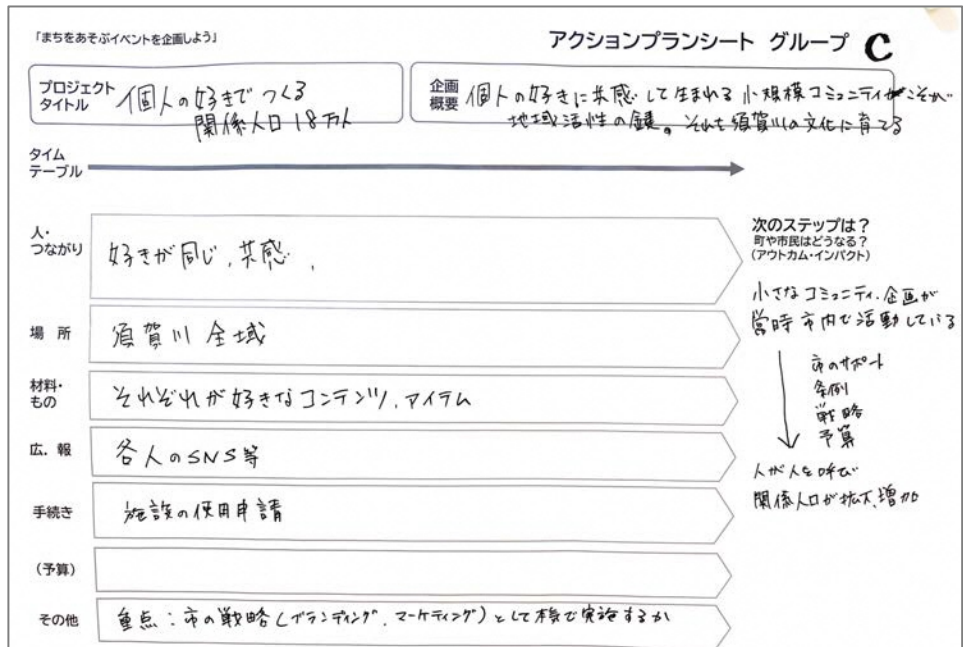 「まちをあそぶイベントを企画しよう」
アクションプランシート グループ C
プロジェクト
タイトル
個人の好きでつくる
関係人口18万人
企画
概要
個人の好きに共感して生まれる小規模コミュニティこそが
地域活性の鍵。それを須賀川の文化に育てる
タイム
テーブル
人・
つながり
好きが同じ、共感、
場 所
須賀川全域
材料・
もの
それぞれが好きなコンテンツ、アイテム
広．報
各人のSNS等
手続き
施設の使用申請
(予算)
その他
重点：市の戦略(ブランディング、マーケティング)として
実施するか
次のステップは？
町や市民はどうなる？
(アウトカム・インパクト)
小さなコミュニティ、企画が
常時市内で活動している
市のサポート
条例
戦略
予算
人が人を呼び
関係人口が拡大、増加